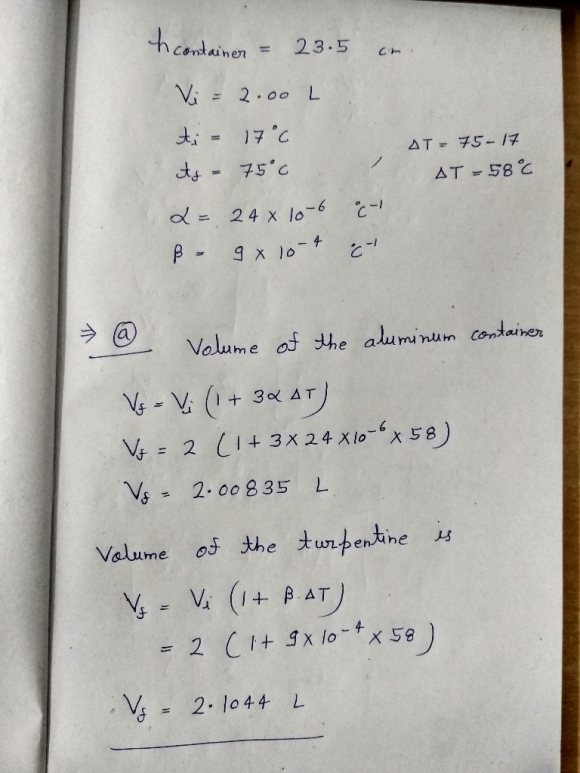 h container = 23.5 cm.
Vi = 2.00 L
ti = 17°C
tf = 75°C , ΔT = 75-17
ΔT = 58°C
α = 24 × 10⁻⁶ °C⁻¹
β = 9 × 10⁻⁴ °C⁻¹
⇒ ⓐ Volume of the aluminum container
Vf = Vi (1 + 3α ΔT)
Vf = 2 (1 + 3×24×10⁻⁶ × 58)
Vf = 2.00835 L
Volume of the turpentine is
Vf = Vi (1 + β.ΔT)
= 2 (1 + 9×10⁻⁴ × 58)
Vf = 2.1044 L